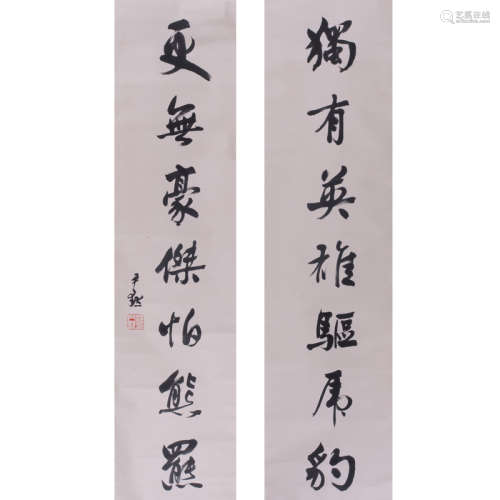 獨有英雄驅虎豹
更無豪傑怕熊羆
尹默